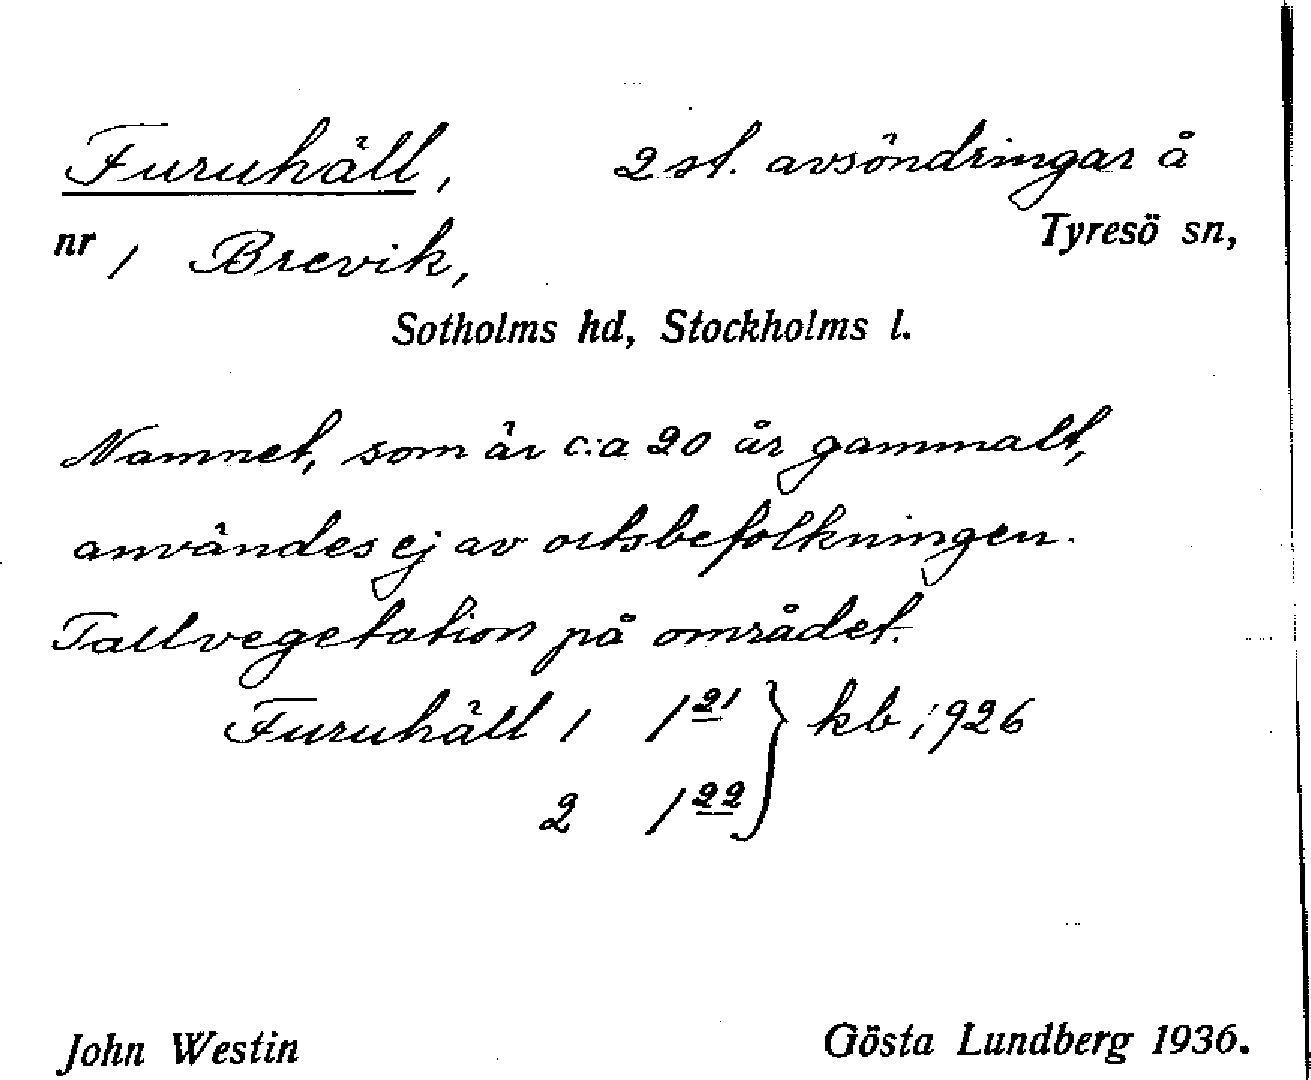 Furuhäll, 2 st. avsöndringar å
nr 1 Brevik, Tyresö sn,
Sotholms hd, Stockholms l.
Namnet, som är c:a 20 år gammalt,
användes ej av ortsbefolkningen.
Tallvegetation på området.
Furuhäll 1 1 21 } kb 1926
2 1 22
John Westin Gösta Lundberg 1936.